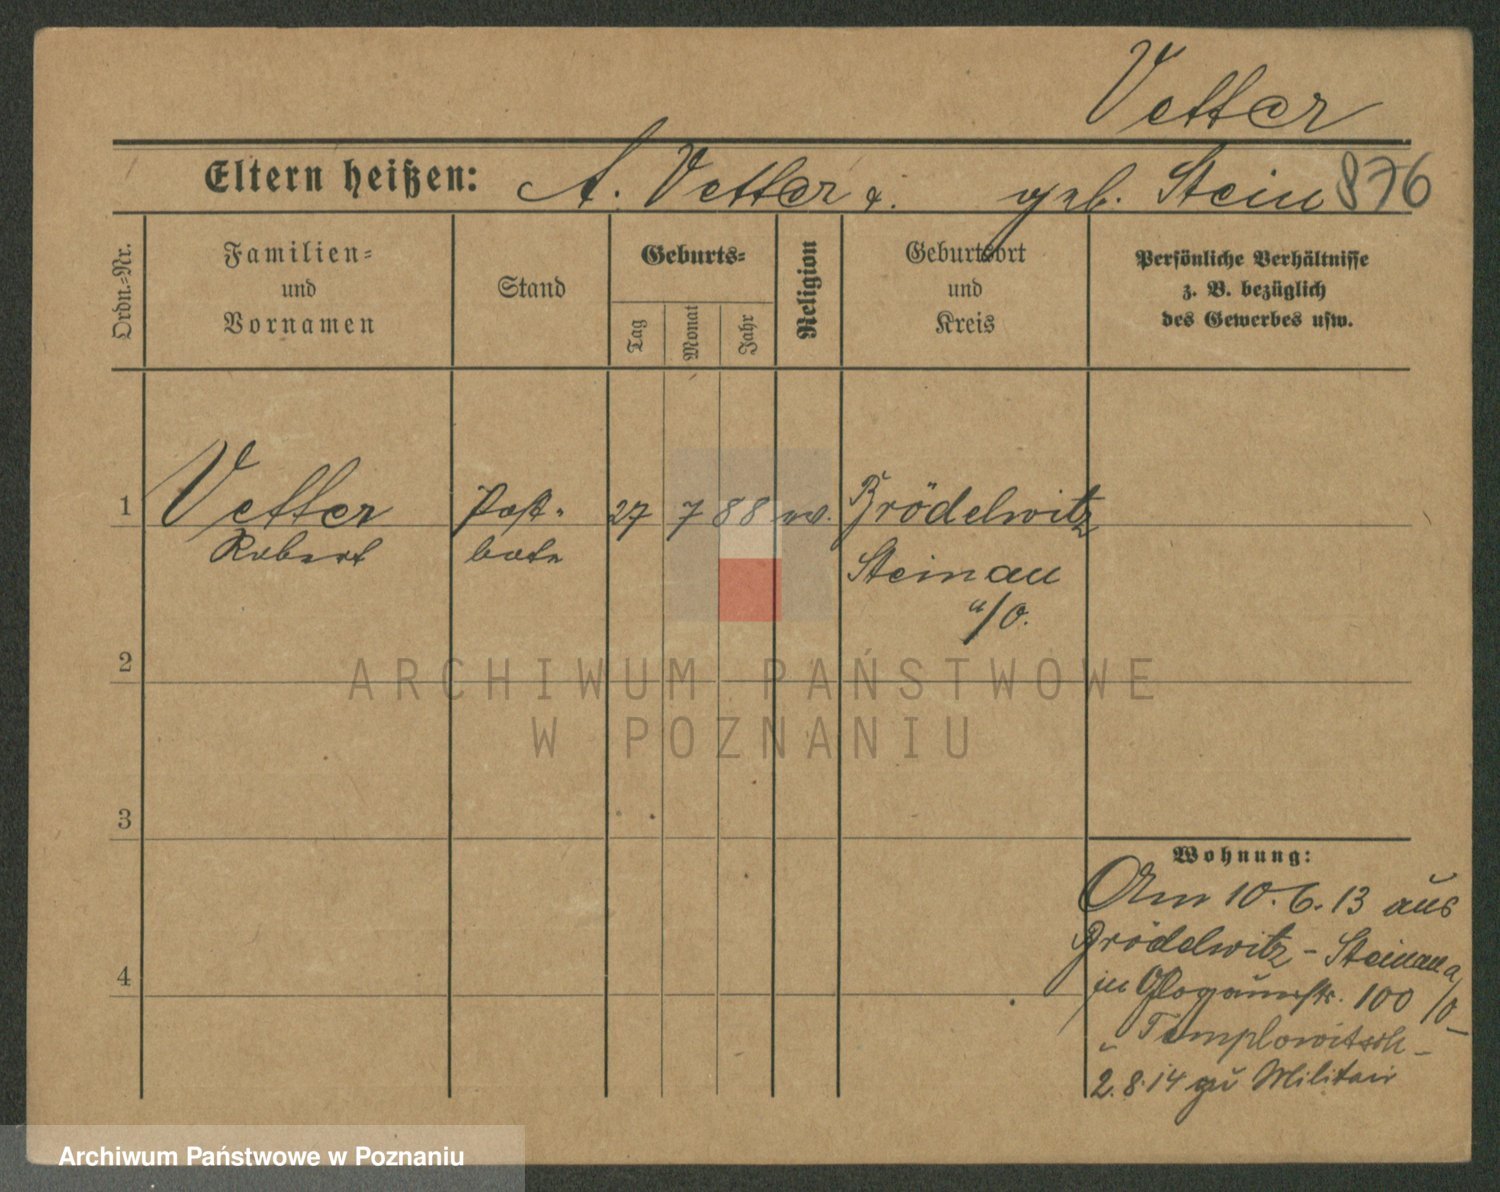 Vetter
Eltern heißen: A. Vetter u. geb. Stein 876
Ordn.=Nr.
Familien=
und
Vornamen
Stand
Geburts=
Tag
Monat
Jahr
Religion
Geburtsort
und
Kreis
Persönliche Verhältnisse
z. B. bezüglich
des Gewerbes usw.
1 Vetter Post- 27 7 88 ev. Brödelwitz
Robert bote
Steinau
a/O.
2
ARCHIWUM PAŃSTWOWE
W POZNANIU
3
Wohnung:
Am 10.6.13 aus
Brödelwitz - Steinau a/O
in Glogauerstr. 100
4
2.8.14 zu Militair
Archiwum Państwowe w Poznaniu